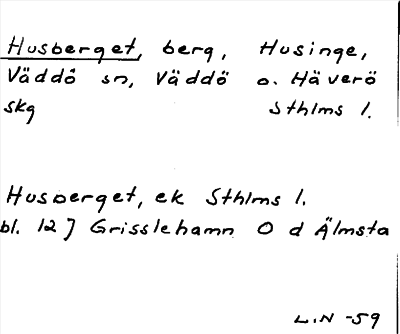 Husberget, berg, Husinge,
Väddö sn, Väddö o. Häverö
skg Sthlms l.
Husberget, ek Sthlms l.
bl. 12J Grisslehamn O d Älmsta
L.N -59